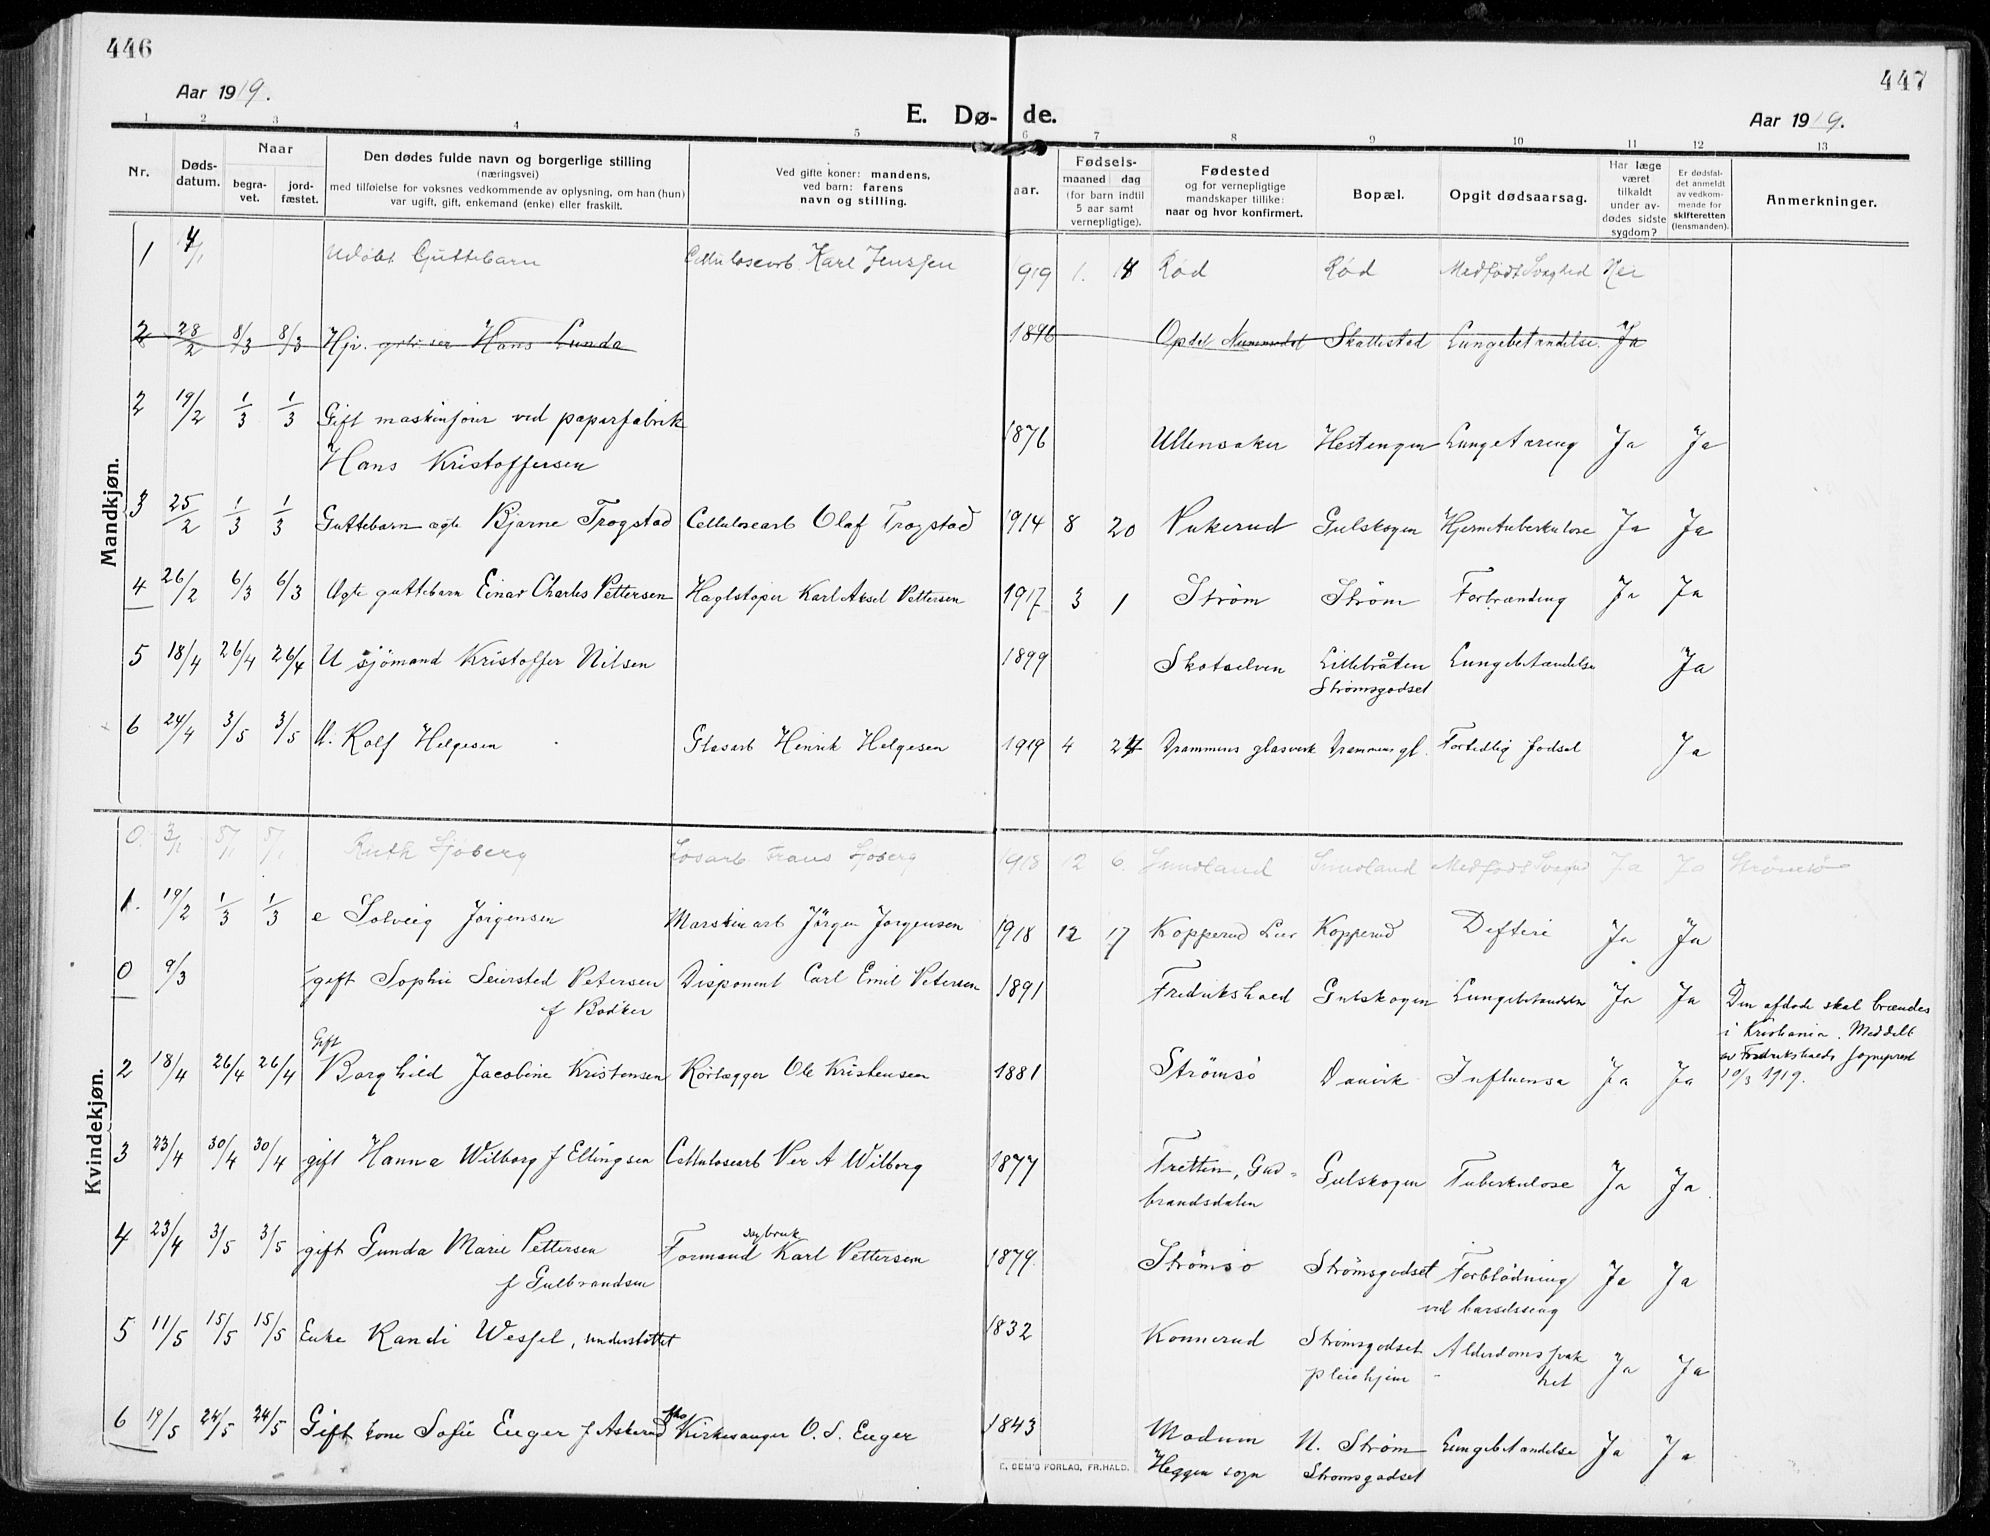 446
447
Aar 1919.
E. Dø- de.
Aar 1919.
1 2 3 4 5 6 7 8 9 10 11 12 13
Nr.
Døds-
datum.
Naar
begra-
vet.
jord-
fæstet.
Den dødes fulde navn og borgerlige stilling
(næringsvei)
med tilføielse for voksnes vedkommende av oplysning, om han (hun)
var ugift, gift, enkemand (enke) eller fraskilt.
Ved gifte koner: mandens,
ved barn: farens
navn og stilling.
aar.
Fødsels-
maaned dag
(for barn indtil
5 aar samt
vernepligtige).
Fødested
og for vernepligtige
mandskaper tillike:
naar og hvor konfirmert.
Bopæl.
Opgit dødsaarsag.
Har læge
været
tilkaldt
under av-
dødes sidste
sygdom?
Er dødsfal-
det anmeldt
av vedkom-
mende for
skifteretten
(lensmanden).
Anmerkninger.
Mandkjøn.
1 4/1 Udøbt Guttebarn Cellulosearb. Karl Jenssen 1919 1. 4 Rød Rød Medfødt Svaghed Nei
2 28/2 8/3 8/3 Hjr. Hans Lunda 1846 Opdal Numedal Skallestad Lungebetændelse. Ja
2 19/2 1/3 1/3 Gift maskinfører ved papirfabrik
Hans Kristoffersen 1876 Ullensaker Hestengen Lungetæring Ja Ja
3 25/2 1/3 1/3 Guttebarn ægte Bjarne Trogstad Cellulosearb Olaf Trogstad 1914 8 20 Pukerud Gulskogen Hjernetuberkulose Ja Ja
4 26/2 6/3 6/3 Ægte guttebarn Einar Charles Pettersen Haglstøper Karl Aksel Pettersen 1917 3 1 Strøm Strøm Forbrænding Ja Ja
5 18/4 26/4 26/4 U sjömand Kristoffer Nilsen 1899 Skotselven Lillebråten Lungebetændelse Ja
Strømsgodset
6 24/4 3/5 3/5 U. Rolf Helgesen Glasarb Henrik Helgesen 1919 4 24 Drammens glasverk Drammens gl. Fortidlig fødsel Ja
Kvindekjøn.
0. 3/1 5/1 5/1 Ruth Sjöberg Løsarb Frans Sjöberg 1918 12 6. Sundland Sundland Medfødt Svaghed Ja Ja Strömsö
1. 19/2 1/3 1/3 e Solveig Jørgensen Marskinarb Jörgen Jørgensen 1918 12 17 Kopperud Lier Kopperud Difteri Ja Ja
0 9/3 gift Sophie Seiersted Petersen Disponent Carl Emil Petersen 1891 Fredrikshald Gulskogen Lungebetændelse Ja Ja Den afdøde skal brændes
f Bødker i Kristiania. Meddelt
av Fredrikshalds sogneprest
10/3 1919.
Gift
2 18/4 26/4 26/4 Borghild Jacobine Kristensen Rörlægger Ole Kristensen 1881 Strömsö Danvik Influensa Ja Ja
3 23/4 30/4 30/4 gift Hanna Wilborg f Ellingsen Cellulosearb Per A Wilborg 1877 Fretten, Gud-
brandsdalen Gulskogen Tuberkulose Ja Ja
4 23/4 3/5 3/5 gift Gunda Marie Pettersen Formand Karl Pettersen 1879 Strømsø Strömsgodset Forblödning Ja Ja
f Gulbrandsen ved barselseng
5 11/5 15/5 15/5 Enke Randi Wessel, understöttet 1832 Konnerud Strömsgodset Alderdomssvak
pleiehjem het Ja Ja
6 19/5 24/5 24/5 Gift kone Sofie Enger f Askerud Kirkesanger O. S. Enger 1843 Modum N. Strøm Lungebetændelse Ja Ja
Heggen sogn Strømsgodset
E. SEM'S FORLAG, FR.HALD.